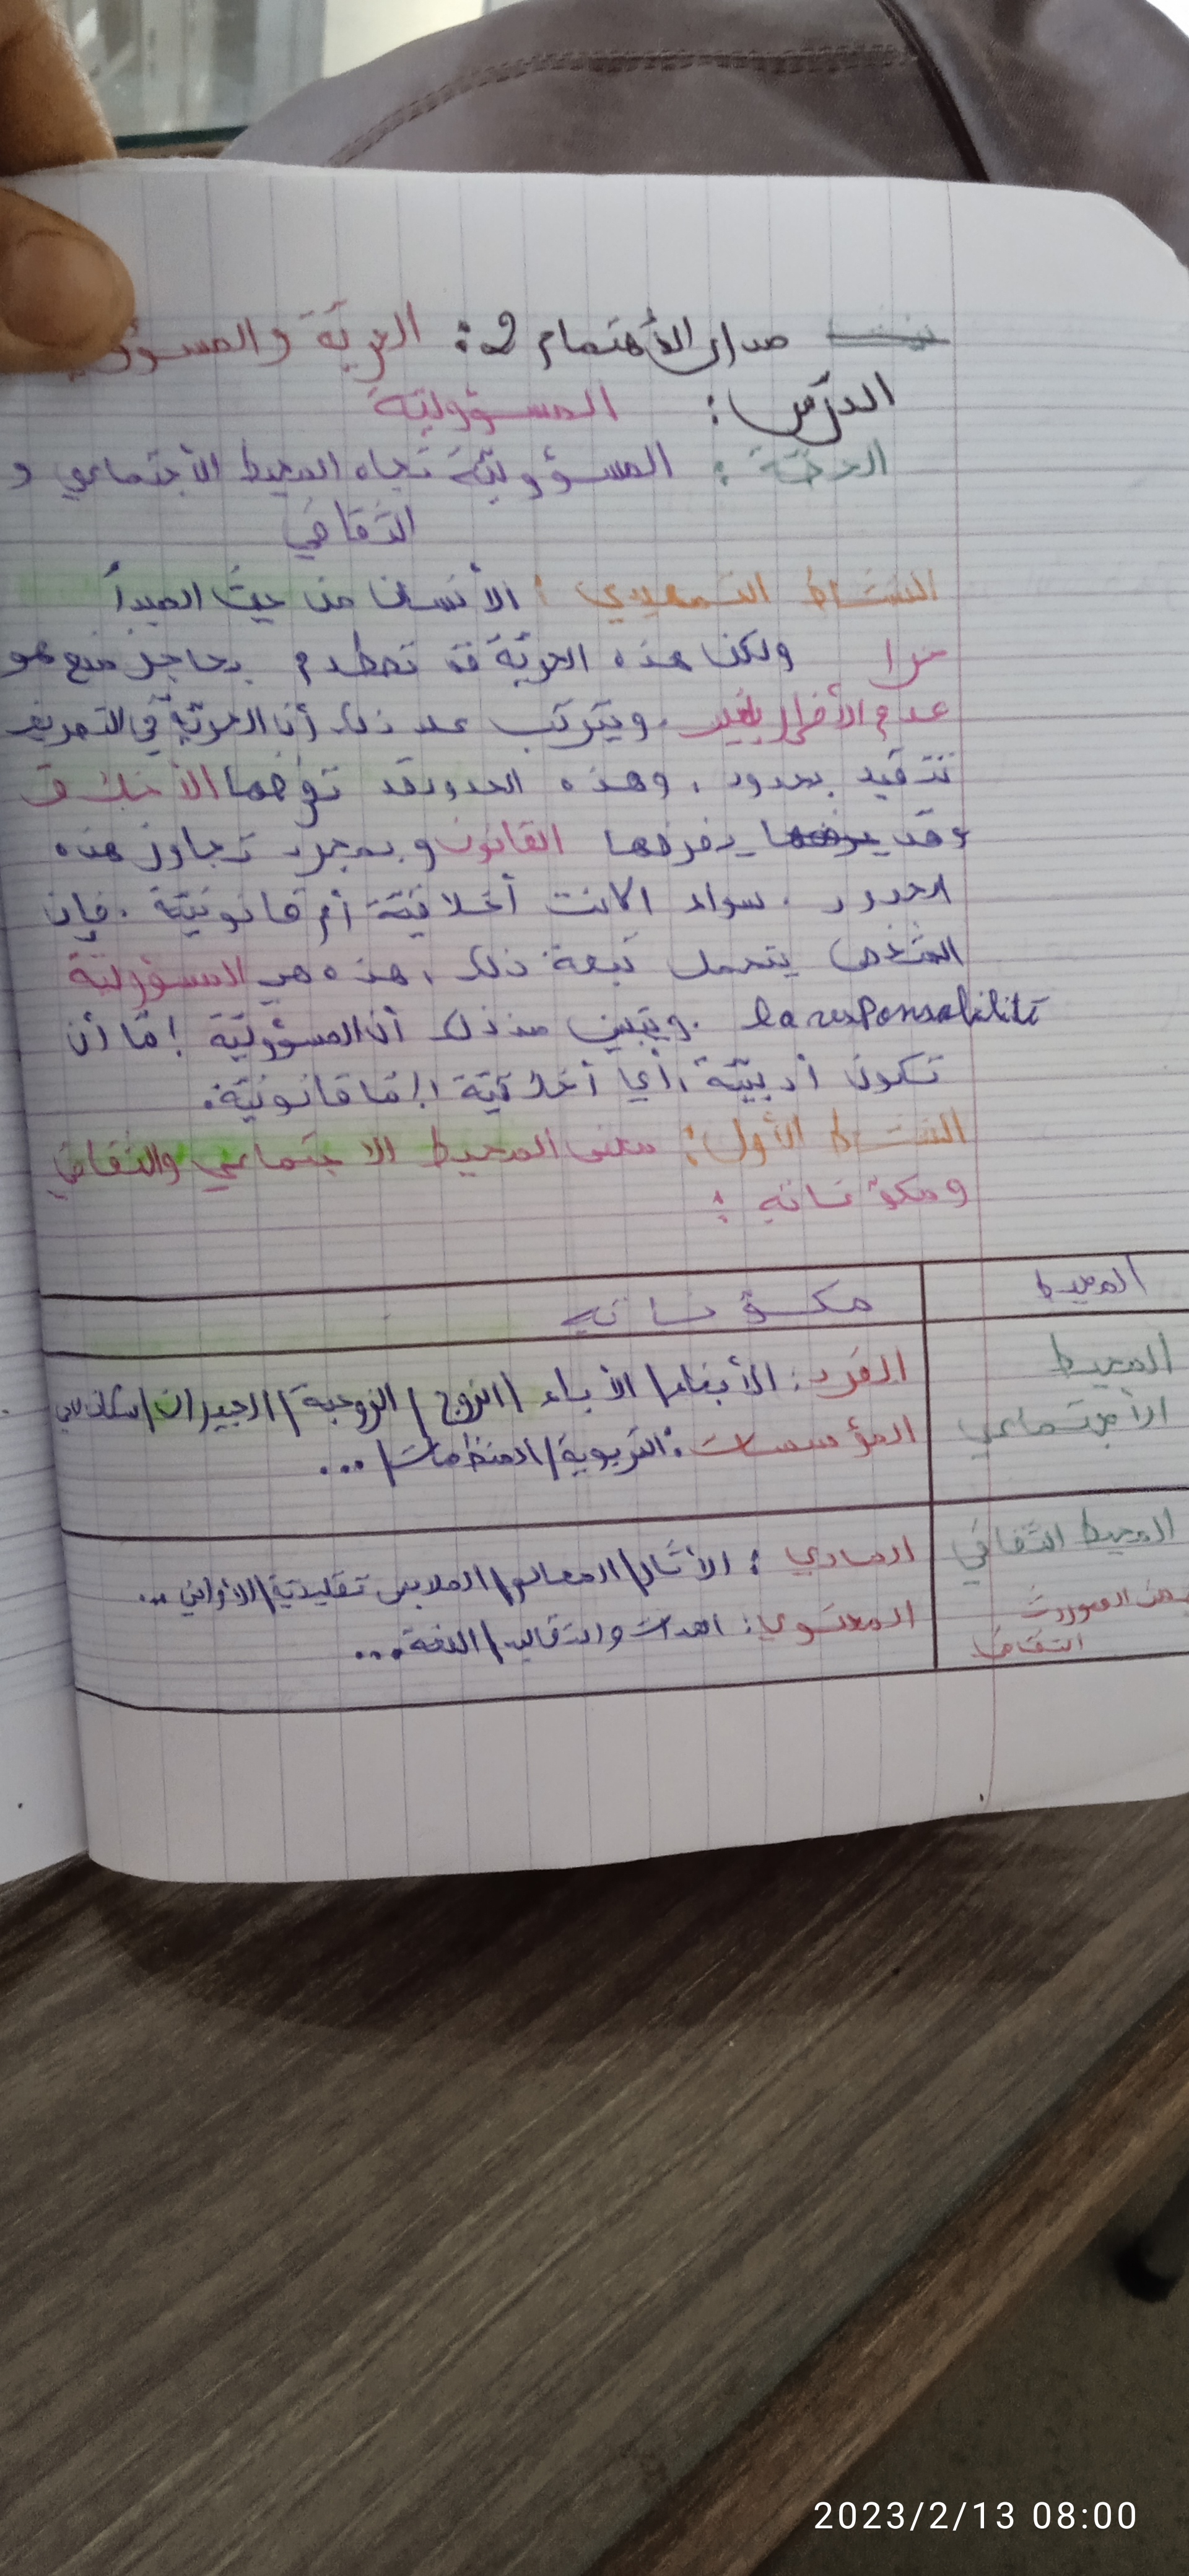 مدار الأهتمام 2: الحريّة والمسؤو
الدرس: المسؤوليّة
الحصّة: المسؤوليّة تجاه المحيط الأجتماعي و
الثقافي
النشاط التمهيدي: الأنسان من حيث المبدأ
حرا ولكن هذه الحريّة قد تصطدم بحاجز منع هو
عدم الأضرار بلغير. ويترتب عند ذلك أن الحريّة في التعريف
تتقيد بحدود، وهذه الحدود قد توضها الأخلاق
وقد يفرضها القانون وبمجرد تجاوز هذه
الحدود. سواء اكانت أخلاقيّة أم قانونيّة. فإن
الشخص يتحمل تبعة ذلك، هذه هي المسؤوليّة
la responsabilité. ويتبين من ذلك أن المسؤوليّة إمّا أن
تكون أدبيّة، أي أخلاقيّة إمّا قانونيّة.
النشاط الأول: معنى المحيط الاجتماعي والثقافي
ومكوّناته:
المحيط مكوّناته
المحيط الأجتماعي الفرد: الأبناء/ الأباء/ الزوج/ الزوجة/ الجيران/
المؤسسات: التربوية/ المنظمات/ ...
المحيط الثقافي المادي: الأثار/ المعالم/ الملابس تقليديّة/ الأواني ...
المعنوي: والتقاليد/ اللغة...
2023/2/13 08:00